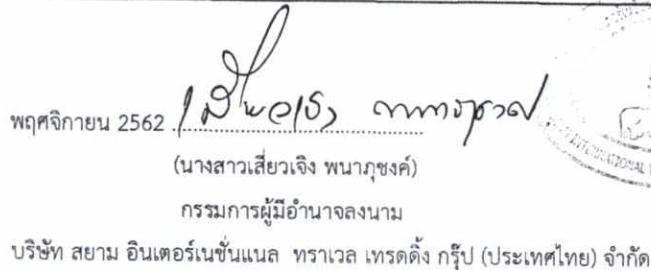 พฤศจิกายน 2562
(นางสาวเสี่ยวเจิง พนาภุชงค์)
กรรมการผู้มีอำนาจลงนาม
บริษัท สยาม อินเตอร์เนชั่นแนล ทราเวล เทรดดิ้ง กรุ๊ป (ประเทศไทย) จำกัด
INTERNATIONAL